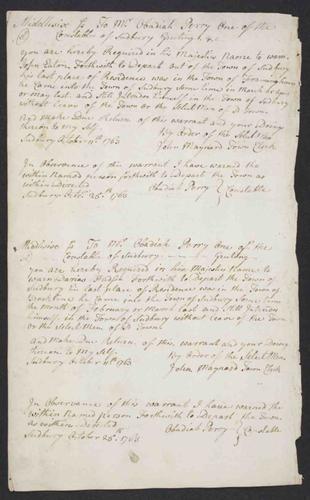 Middlesex ss To Mr. Obadiah Perry One of the
Constable of Sudbury Greeting &c
you are hereby Required in his Majesties Name to warn
John Eaton Forthwith to Depart out of the Town of Sudbury
his last place of Residence was in the Town of Framingham
he Came into the Town of Sudbury Some time in March
or may last and Still himself in the Town of Sudbury
without leave of the Town or the Select Men of Sd Town
and Make Due Return of this warrant and your Doing
thereon to my Self. By Order of the Select Men
Sudbury October 4th 1763 John Maynard Town Clerk
In Observance of this warrant I have warned the
within Named person forthwith to Depart the Town as
within Directed Obadiah Perry } Constable
Sudbury Octr. 25th 1763
Middlesex ss To Mr. Obadiah Perry One of the
Constable of Sudbury Greeting
you are hereby Required in his Majesties Name to
warn Forthwith to Depart the Town of
Sudbury his last place of Residence was in the Town of
Brookline he Came into the Town of Sudbury Some time
the Month of February or March last and Still
himself in the Town of Sudbury without leave of the Town
or the Select Men of Sd Town
And Make Due Return of this warrant and your Doing
thereon to My Self. By Order of the Select Men
Sudbury October 4th 1763 John Maynard Town Clerk
In Observance of this warrant I have warned the
within Named person Forthwith to Depart the Town
as within Directed Obadiah Perry } Constable
Sudbury October 25th 1763